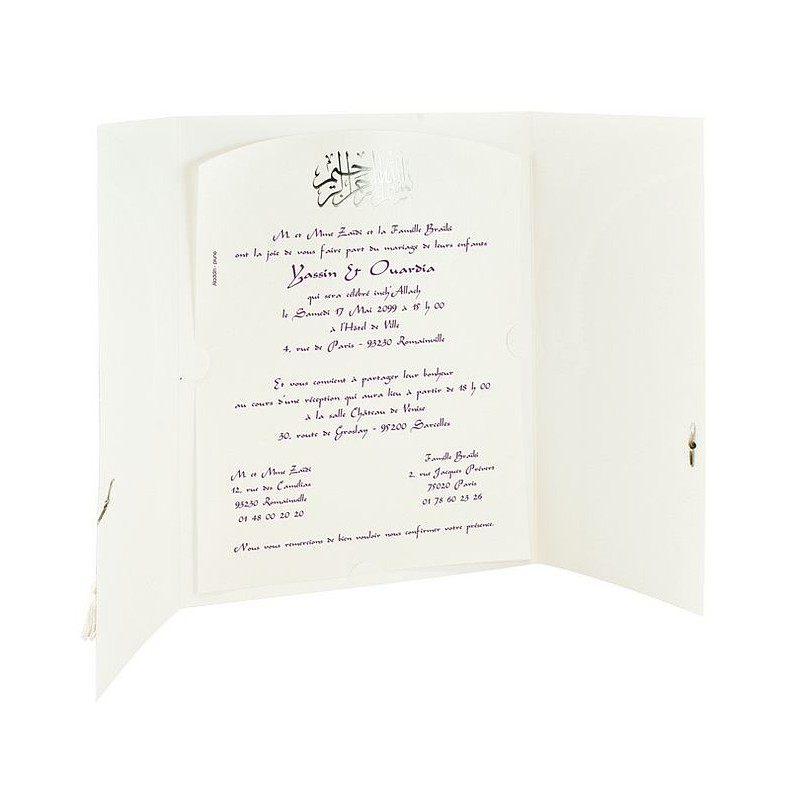 بسم الله الرحمن الرحيم
M et Mme Zaïdi et la Famille Braïki
ont la joie de vous faire part du mariage de leurs enfants
Yassin & Ouardia
qui sera célébré inch'Allach
le Samedi 17 Mai 2099 à 15 h 00
à l'Hôtel de Ville
4, rue de Paris - 93230 Romainville
Et vous convient à partager leur bonheur
au cours d'une réception qui aura lieu à partir de 18 h 00
à la salle Château de Venise
30, route de Groslay - 95200 Sarcelles
M et Mme Zaïdi
12, rue des Camélias
93230 Romainville
01 48 00 20 20
Famille Braïki
2, rue Jacques Prévert
75020 Paris
01 78 60 23 26
Nous vous remercions de bien vouloir nous confirmer votre présence.
Aladdin - prune